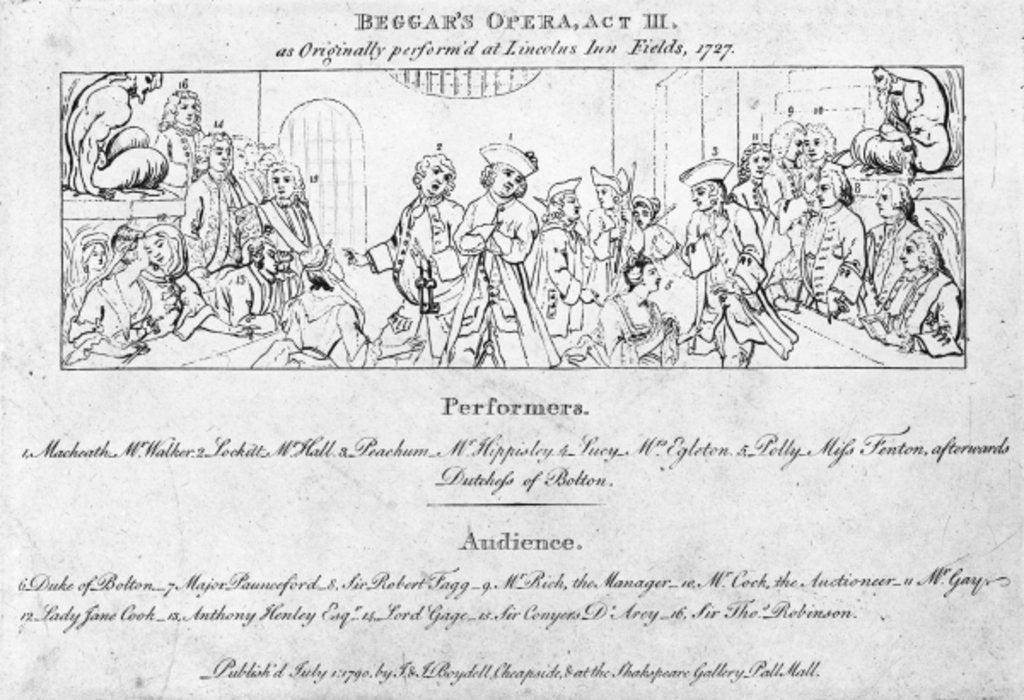 BEGGAR'S OPERA, ACT III.
as Originally perform'd at Lincolns Inn Fields, 1727.
16
14
15
2
1
3
11
9
10
8
7
12
13
5
Performers.
1, Macheath Mr. Walker. 2 Lockitt Mr. Hall. 3 Peachum Mr. Hippisley. 4 Lucy Mrs. Egleton. 5 Polly Miss Fenton, afterwards
Dutchess of Bolton.
Audience.
6 Duke of Bolton 7 Major Paunceford 8, Sir Robert Fagg 9, Mr. Rich, the Manager 10, Mr. Cock, the Auctioneer 11 Mr. Gay
12 Lady Jane Cook 13, Anthony Henley Esqr. 14, Lord Gage 15 Sir Conyers D'Arcy 16, Sir Thos. Robinson.
Publish'd July 1: 1790, by J. & J. Boydell, Cheapside, & at the Shakspeare Gallery Pall Mall.